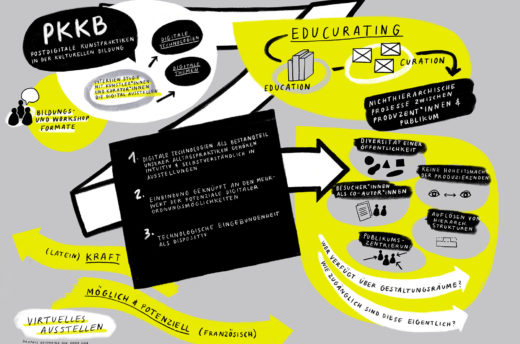 PKKB
POSTDIGITALE KUNSTPRAKTIKEN
IN DER KULTURELLEN BILDUNG
DIGITALE
TECHNOLOGIEN
DIGITALE
THEMEN
STUDIE
MIT KÜNSTLER*INNEN
UND KURATOR*INNEN
DIE DIGITAL AUSSTELLEN
BILDUNGS-
UND WORKSHOP
FORMATE
EDUCURATING
EDUCATION
CURATION
NICHTHIERARCHISCHE
PROZESSE ZWISCHEN
PRODUZENT*INNEN &
PUBLIKUM
1. DIGITALE TECHNOLOGIEN ALS BESTANDTEIL
UNSERER ALLTAGSPRAKTIKEN GEHÖREN
INTUITIV & SELBSTVERSTÄNDLICH IN
AUSSTELLUNGEN
2. EINBINDUNG GEKNÜPFT AN DEN MEHR-
WERT DER POTENZIALE DIGITALER
ORDNUNGSMÖGLICHKEITEN
3. TECHNOLOGISCHE EINGEBUNDENHEIT
ALS DISPOSITIV
DIVERSITÄT EINER
ÖFFENTLICHKEIT
KEINE HOHEITSMACHT
DER PRODUZIERENDEN
BESUCHER*INNEN
ALS CO-AUTOR*INNEN
AUFLÖSEN VON
HIERARCH.
STRUKTUREN
PUBLIKUMS-
ZENTRIERUNG
WER VERFÜGT ÜBER GESTALTUNGSRÄUME?
WIE ZUGÄNGLICH SIND DIESE EIGENTLICH?
(LATEIN) KRAFT
MÖGLICH & POTENZIELL (FRANZÖSISCH)
VIRTUELLES
AUSSTELLEN